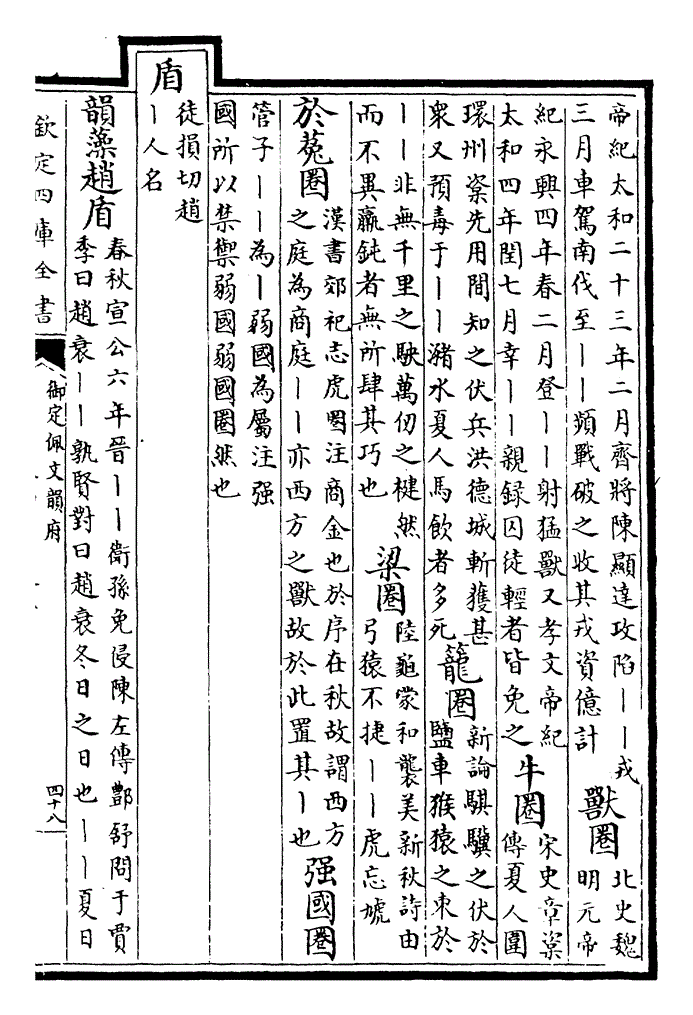 帝紀太和二十三年二月齊將陳顯達攻陷丨丨戎
三月車駕南伐至丨丨頻戰破之收其戎資億計
獸圈
北史魏
明元帝
紀永興四年春二月登丨丨射猛獸又孝文帝紀
太和四年閏七月幸丨丨親録囚徒輕者皆免之
牛圈
宋史章楶
傳夏人圍
環州楶先用間知之伏兵洪德城斬獲甚
衆又預毒于丨丨瀦水夏人馬飲者多死
籠圈
新論騏驥之伏於
鹽車猴猿之束於
丨丨非無千里之駛萬仞之楗然
而不異羸鈍者無所肆其巧也
梁圈
陸龜蒙和襲美新秋詩由
弓猿不捷丨丨虎忘
於菟圈
漢書郊祀志虎圈注商金也於序在秋故謂西方
之庭為商庭丨丨亦西方之獸故於此置其丨也
强國圈
管子丨丨為丨弱國為屬注强
國所以禁禦弱國弱國圈然也
盾
徒損切趙
丨人名
韻藻趙盾
春秋宣公六年晉丨丨衛孫免侵陳左傳酆舒問于賈
季曰趙衰丨丨孰賢對曰趙衰冬日之日也丨丨夏日
欽定四庫全書
御定佩文韻府
四十八